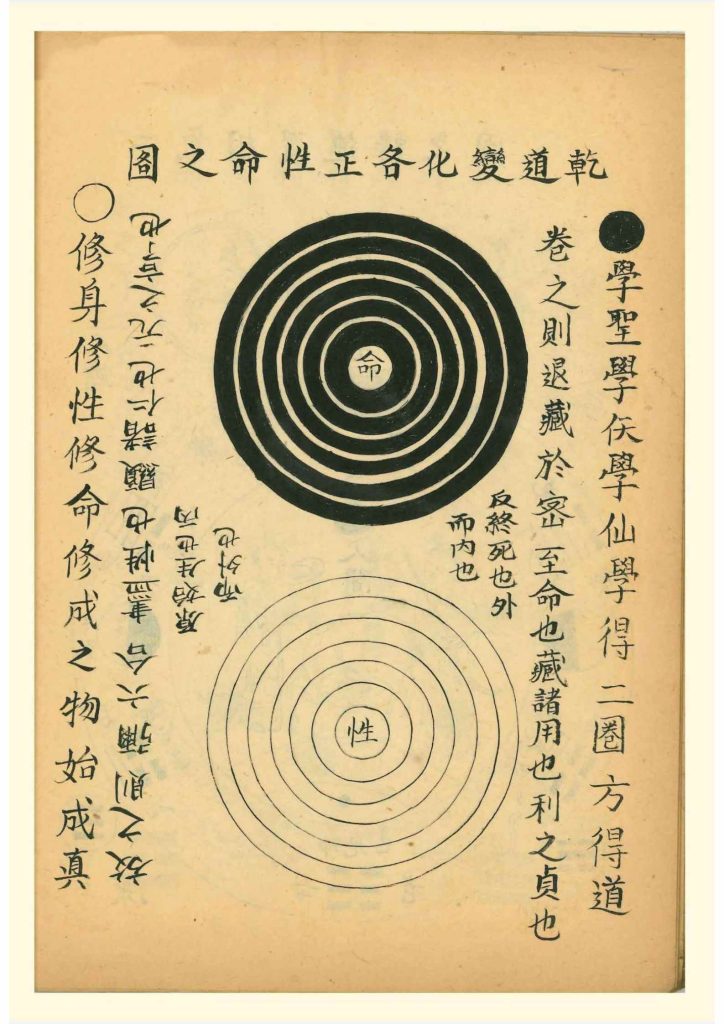 乾道變化各正性命之圖
●學聖學仸學仙學得二圈方得道
卷之則退藏於密至命也藏諸用也利之貞也
反終死也外
而內也
命
性
原始生也內
而外也
放之則彌六合盡性也顯諸仁也元之亨也
○修身修性修命修成之物始成真